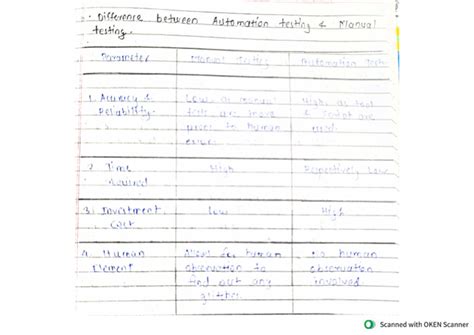 Difference between Automation testing & Manual
testing.
Parameter Manual Testing Automation Test
1. Accuracy & Low, as manual High, as test
Reliability tests are more & script are
prone to human used.
error.
2. Time High Respectively Low
required
3. Investment Low High
Cost
4. Human Allows for human No human
Element observation to observation
find out any involved.
glitches.
Scanned with OKEN Scanner